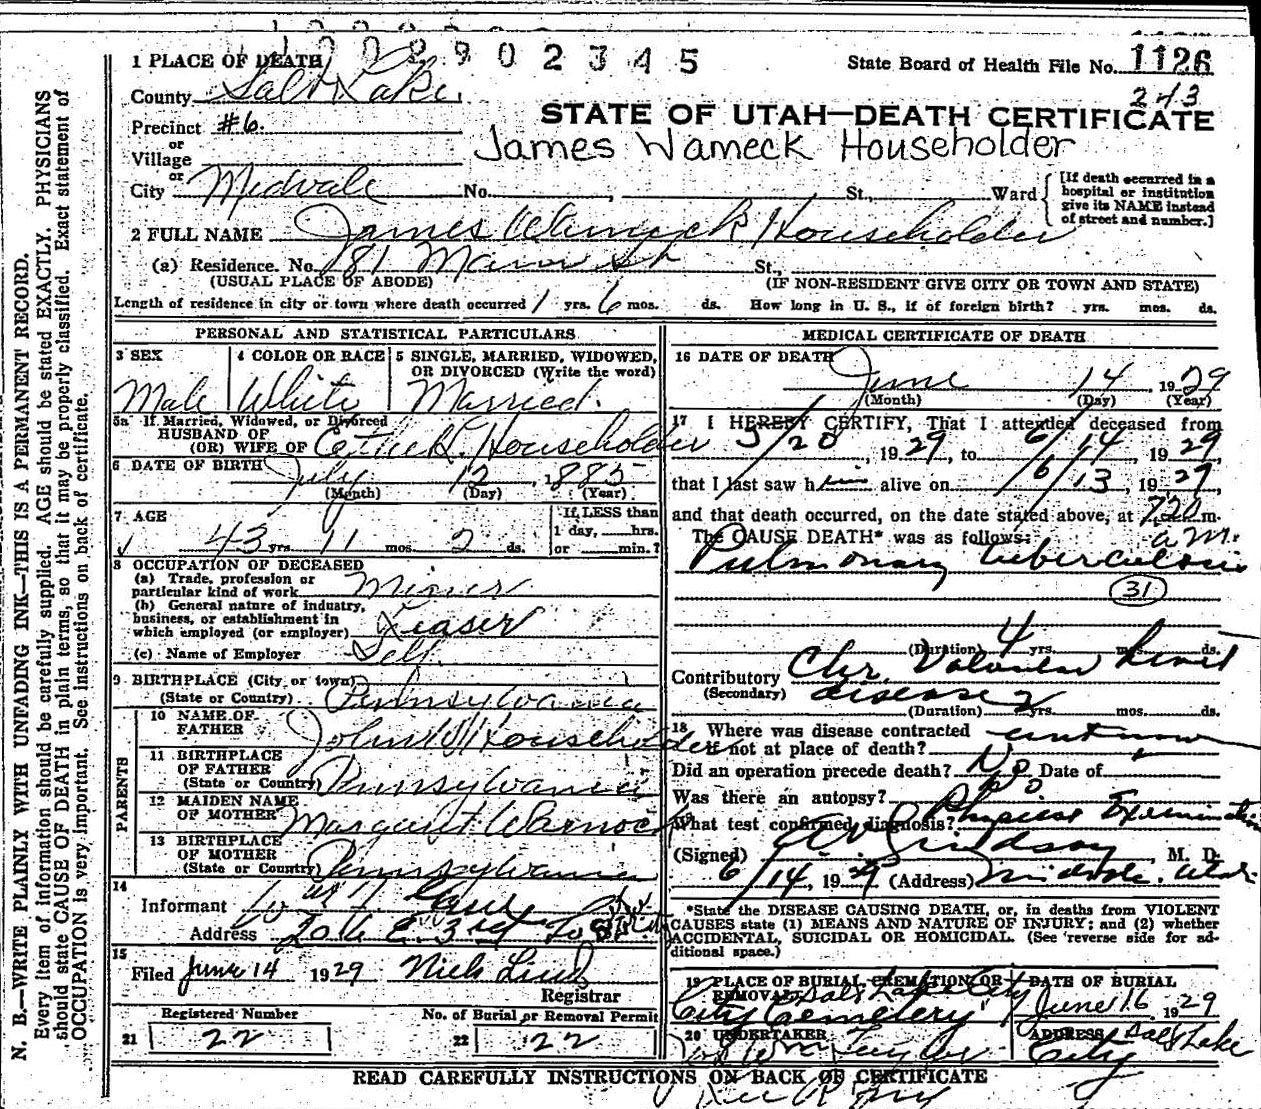 2902345
1 PLACE OF DEATH
State Board of Health File No. 1126
County Salt Lake
243
STATE OF UTAH—DEATH CERTIFICATE
Precinct #6
James Wameck Householder
or
Village
or
City Midvale No. , St., Ward
[If death occurred in a hospital or institution give its NAME instead of street and number.]
2 FULL NAME James Householder
(a) Residence. No. 181 Main St St.,
(USUAL PLACE OF ABODE) (IF NON-RESIDENT GIVE CITY OR TOWN AND STATE)
Length of residence in city or town where death occurred 1 yrs. 6 mos. ds. How long in U. S., if of foreign birth? yrs. mos. ds.
PERSONAL AND STATISTICAL PARTICULARS
3 SEX
Male
4 COLOR OR RACE
White
5 SINGLE, MARRIED, WIDOWED, OR DIVORCED (Write the word)
Married.
5a If Married, Widowed, or Divorced
HUSBAND OF
(OR) WIFE OF Householder
6 DATE OF BIRTH July 12, 1885
(Month) (Day) (Year)
7 AGE
43 yrs. 11 mos. 2 ds.
If LESS than
1 day, hrs.
or min.?
8 OCCUPATION OF DECEASED
(a) Trade, profession or
particular kind of work Miner
(b) General nature of industry,
business, or establishment in
which employed (or employer) Leaser
(c) Name of Employer Self
9 BIRTHPLACE (City or town)
(State or Country) Pennsylvania
PARENTS
10 NAME OF
FATHER John W Householder
11 BIRTHPLACE
OF FATHER
(State or Country) Pennsylvania
12 MAIDEN NAME
OF MOTHER Margaret Warnock
13 BIRTHPLACE
OF MOTHER
(State or Country) Pennsylvania
14
Informant
Address E. 3rd So
15
Filed June 14 1929 Nick Lind
Registrar
Registered Number
21 22
No. of Burial or Removal Permit
22 22
MEDICAL CERTIFICATE OF DEATH
16 DATE OF DEATH
June 14, 1929
(Month) (Day) (Year)
17 I HEREBY CERTIFY, That I attended deceased from
5/20, 1929, to 6/14 1929
that I last saw him alive on 6/13, 1929,
and that death occurred, on the date stated above, at 720 m.
The CAUSE DEATH* was as follows: a.m.
Pulmonary tuberculosis
31
(Duration) 4 yrs. mos. ds.
Contributory Chr. Valvular heart
(Secondary) disease
(Duration) 2 yrs. mos. ds.
18 Where was disease contracted
if not at place of death? unknown
Did an operation precede death? No Date of
Was there an autopsy? no
What test confirmed diagnosis? Physical Examination
(Signed) Lindsay, M. D.
6/14, 1929 (Address) Midvale, Utah
*State the DISEASE CAUSING DEATH, or, in deaths from VIOLENT
CAUSES state (1) MEANS AND NATURE OF INJURY; and (2) whether
ACCIDENTAL, SUICIDAL OR HOMICIDAL. (See reverse side for ad-
ditional space.)
19 PLACE OF BURIAL, CREMATION OR
REMOVAL Salt Lake City
City Cemetery
DATE OF BURIAL
June 16 1929
20 UNDERTAKER
Jos Wm Taylor
ADDRESS Salt Lake
City
READ CAREFULLY INSTRUCTIONS ON BACK OF CERTIFICATE
N. B.—WRITE PLAINLY WITH UNFADING INK—THIS IS A PERMANENT RECORD.
Every item of information should be carefully supplied. AGE should be stated EXACTLY. PHYSICIANS
should state CAUSE OF DEATH in plain terms, so that it may be properly classified. Exact statement of
OCCUPATION is very important. See instructions on back of certificate.